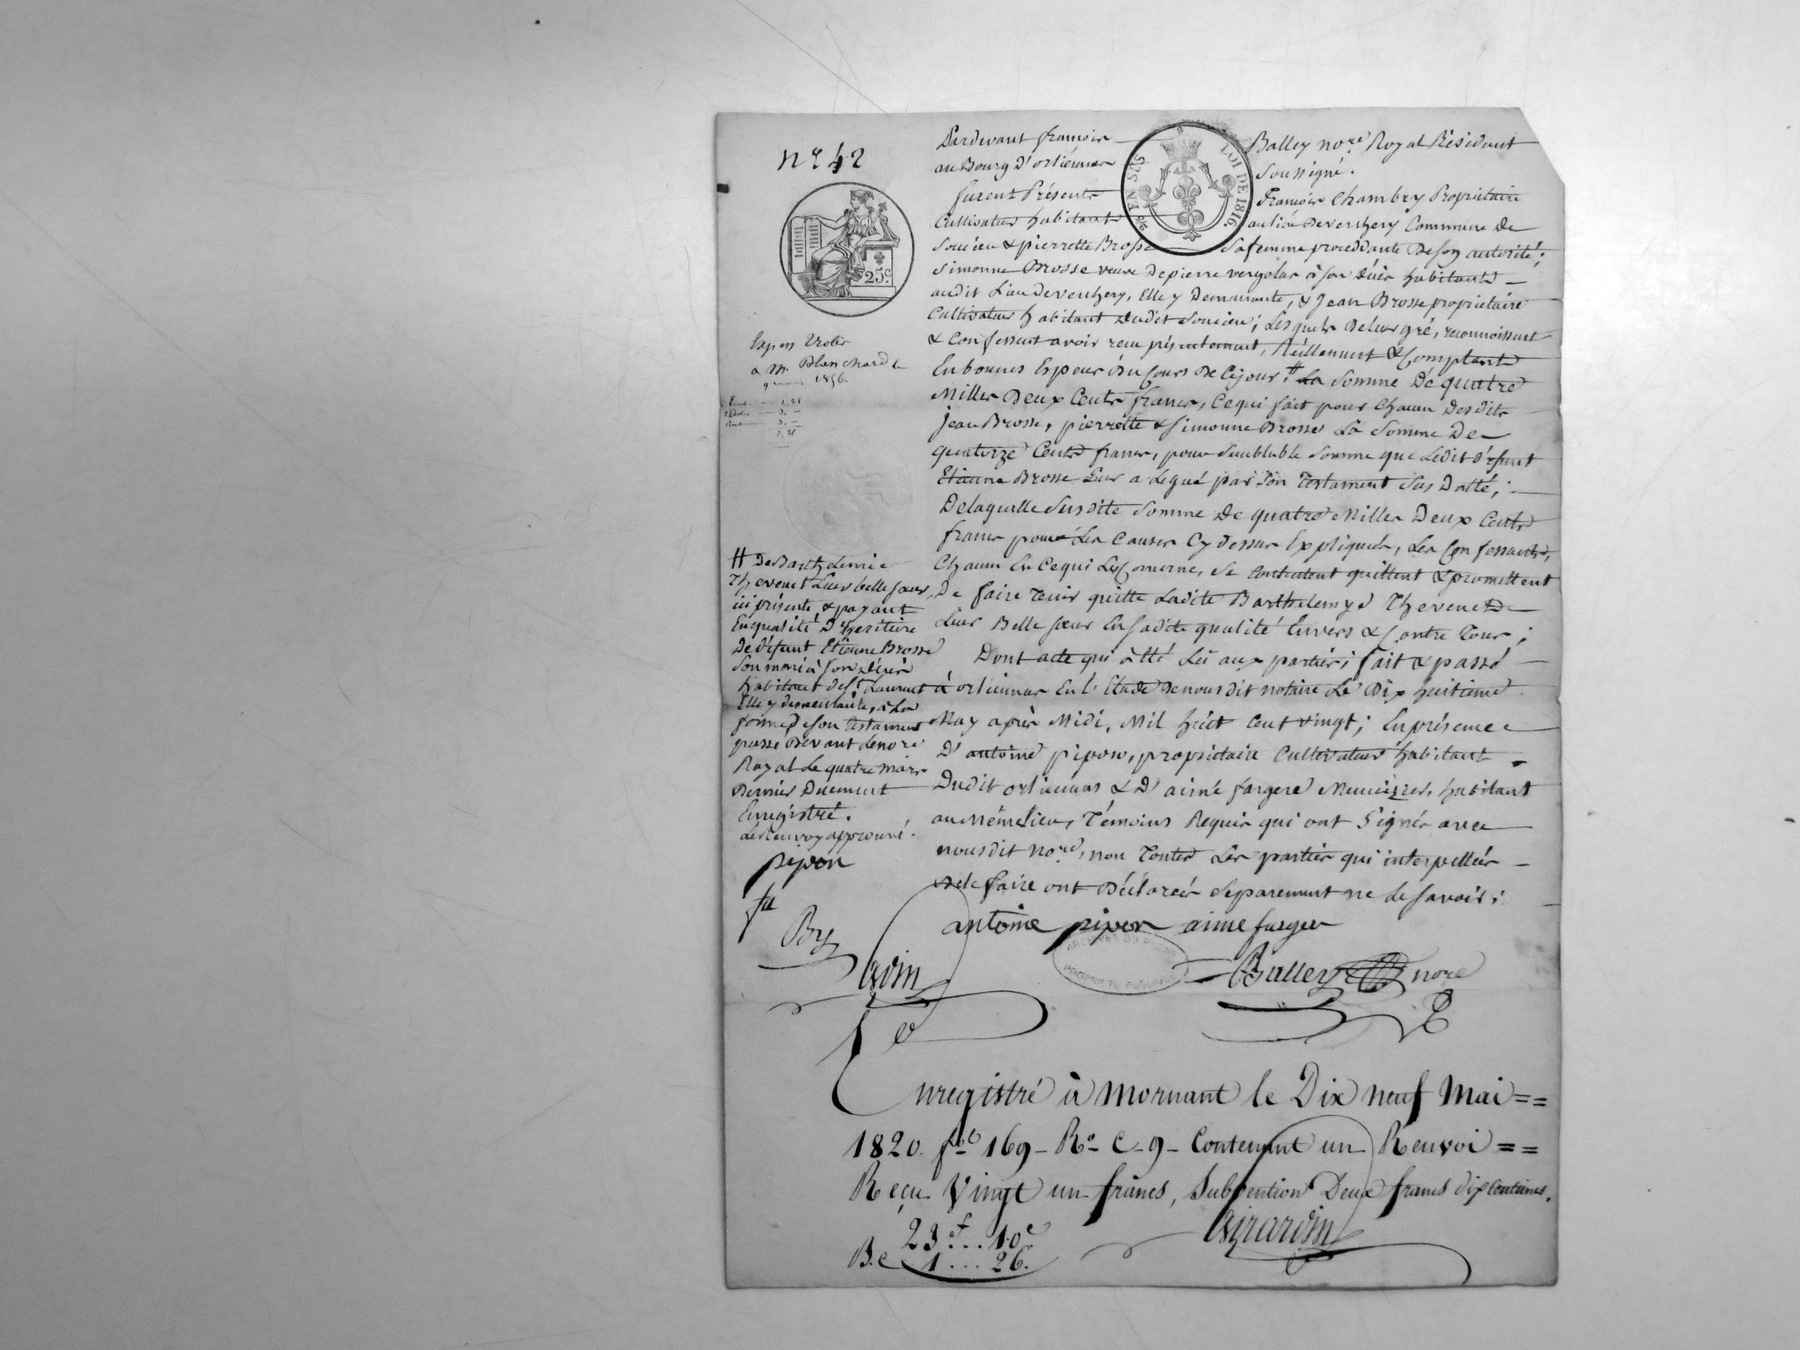 N.º 42
Pardevant françois Balley no.re Royal Résidant
au Bourg d'orliénas soussigné.
furent Présents françois Chambry Propriétaire
Cultivateur habitant au lieu de verchery Commune de
Soucieu & pierrette Brosse sa femme procédante de son autorité;
Simonne Brosse veuve de pierre vergolas à son décès habitant
audit Lieu de verchery, Elle y Demeurante, & Jean Brosse propriétaire
Cultivateur habitant dudit Soucieu; Lesquels de leur gré, reconnoissent
& Confessent avoir recu présentement, Réellement & Comptant
En bonnes Espèces du Cours de Cejour, # La Somme De quatre
Milles Deux Cents francs, Cequi fait pour chacun desdits
Jean Brosse, pierrette & Simonne Brosse La Somme De
quatorze Cents francs, pour Semblable Somme que Ledit défunt
Etienne Brosse Leur a légué par son Testament sus Datté;
Delaquelle Susdite Somme De quatre Milles Deux Cents
francs pour Les Causes Cy dessus Expliquées, Les Confessants,
Chacun En Cequi Les Concerne, se Contentent quittent & promettent
De faire Tenir quitte Ladite Barthelemyd Thevenet
Leur Belle sœur En sadite qualité Envers & Contre Tous;
Dont acte qui a été Lû aux parties; fait & passé
à orliennas En L'Etude de nousdit notaire Le Dix huitième
May après Midi, Mil huit Cent vingt; En présence
D'antoine pipon, propriétaire Cultivateur habitant
Dudit orliennas & D'aimé fargere Menuizier, habitant
au Même lieu, Témoins Requis qui ont Signés avec
nousdit No.re, non Toutes Les parties qui interpellées
de le faire ont Déclarées séparement ne le savoir;
Expon
a M. Blanchard
1856
# De Barthelemie
Thevenet Leur belle sœur,
ici présente & payant
En qualité D'héritière
De défunt Etienne Brosse
Son mari à son décès
habitant de S.t Laurent
Elle y demeurante, à la
forme de son Testament
passé Devant le no.re
Royal Le quatre mars
Dernier Duement
Enregistré.
Le Renvoy approuvé.
pipon
fa
By
antoine pipon aime farger
Balley nore
Enregistré à Mornant le Dix neuf Mai ==
1820. f.º 169 - R.º C. 9 - Contenant un Renvoi ==
Reçu Vingt un francs, Subvention Deux francs dix Centimes.
23.f ... 10.c
B.e 1 ... 26.
Girardin
25 c.
EN SUS
LOI DE 1816